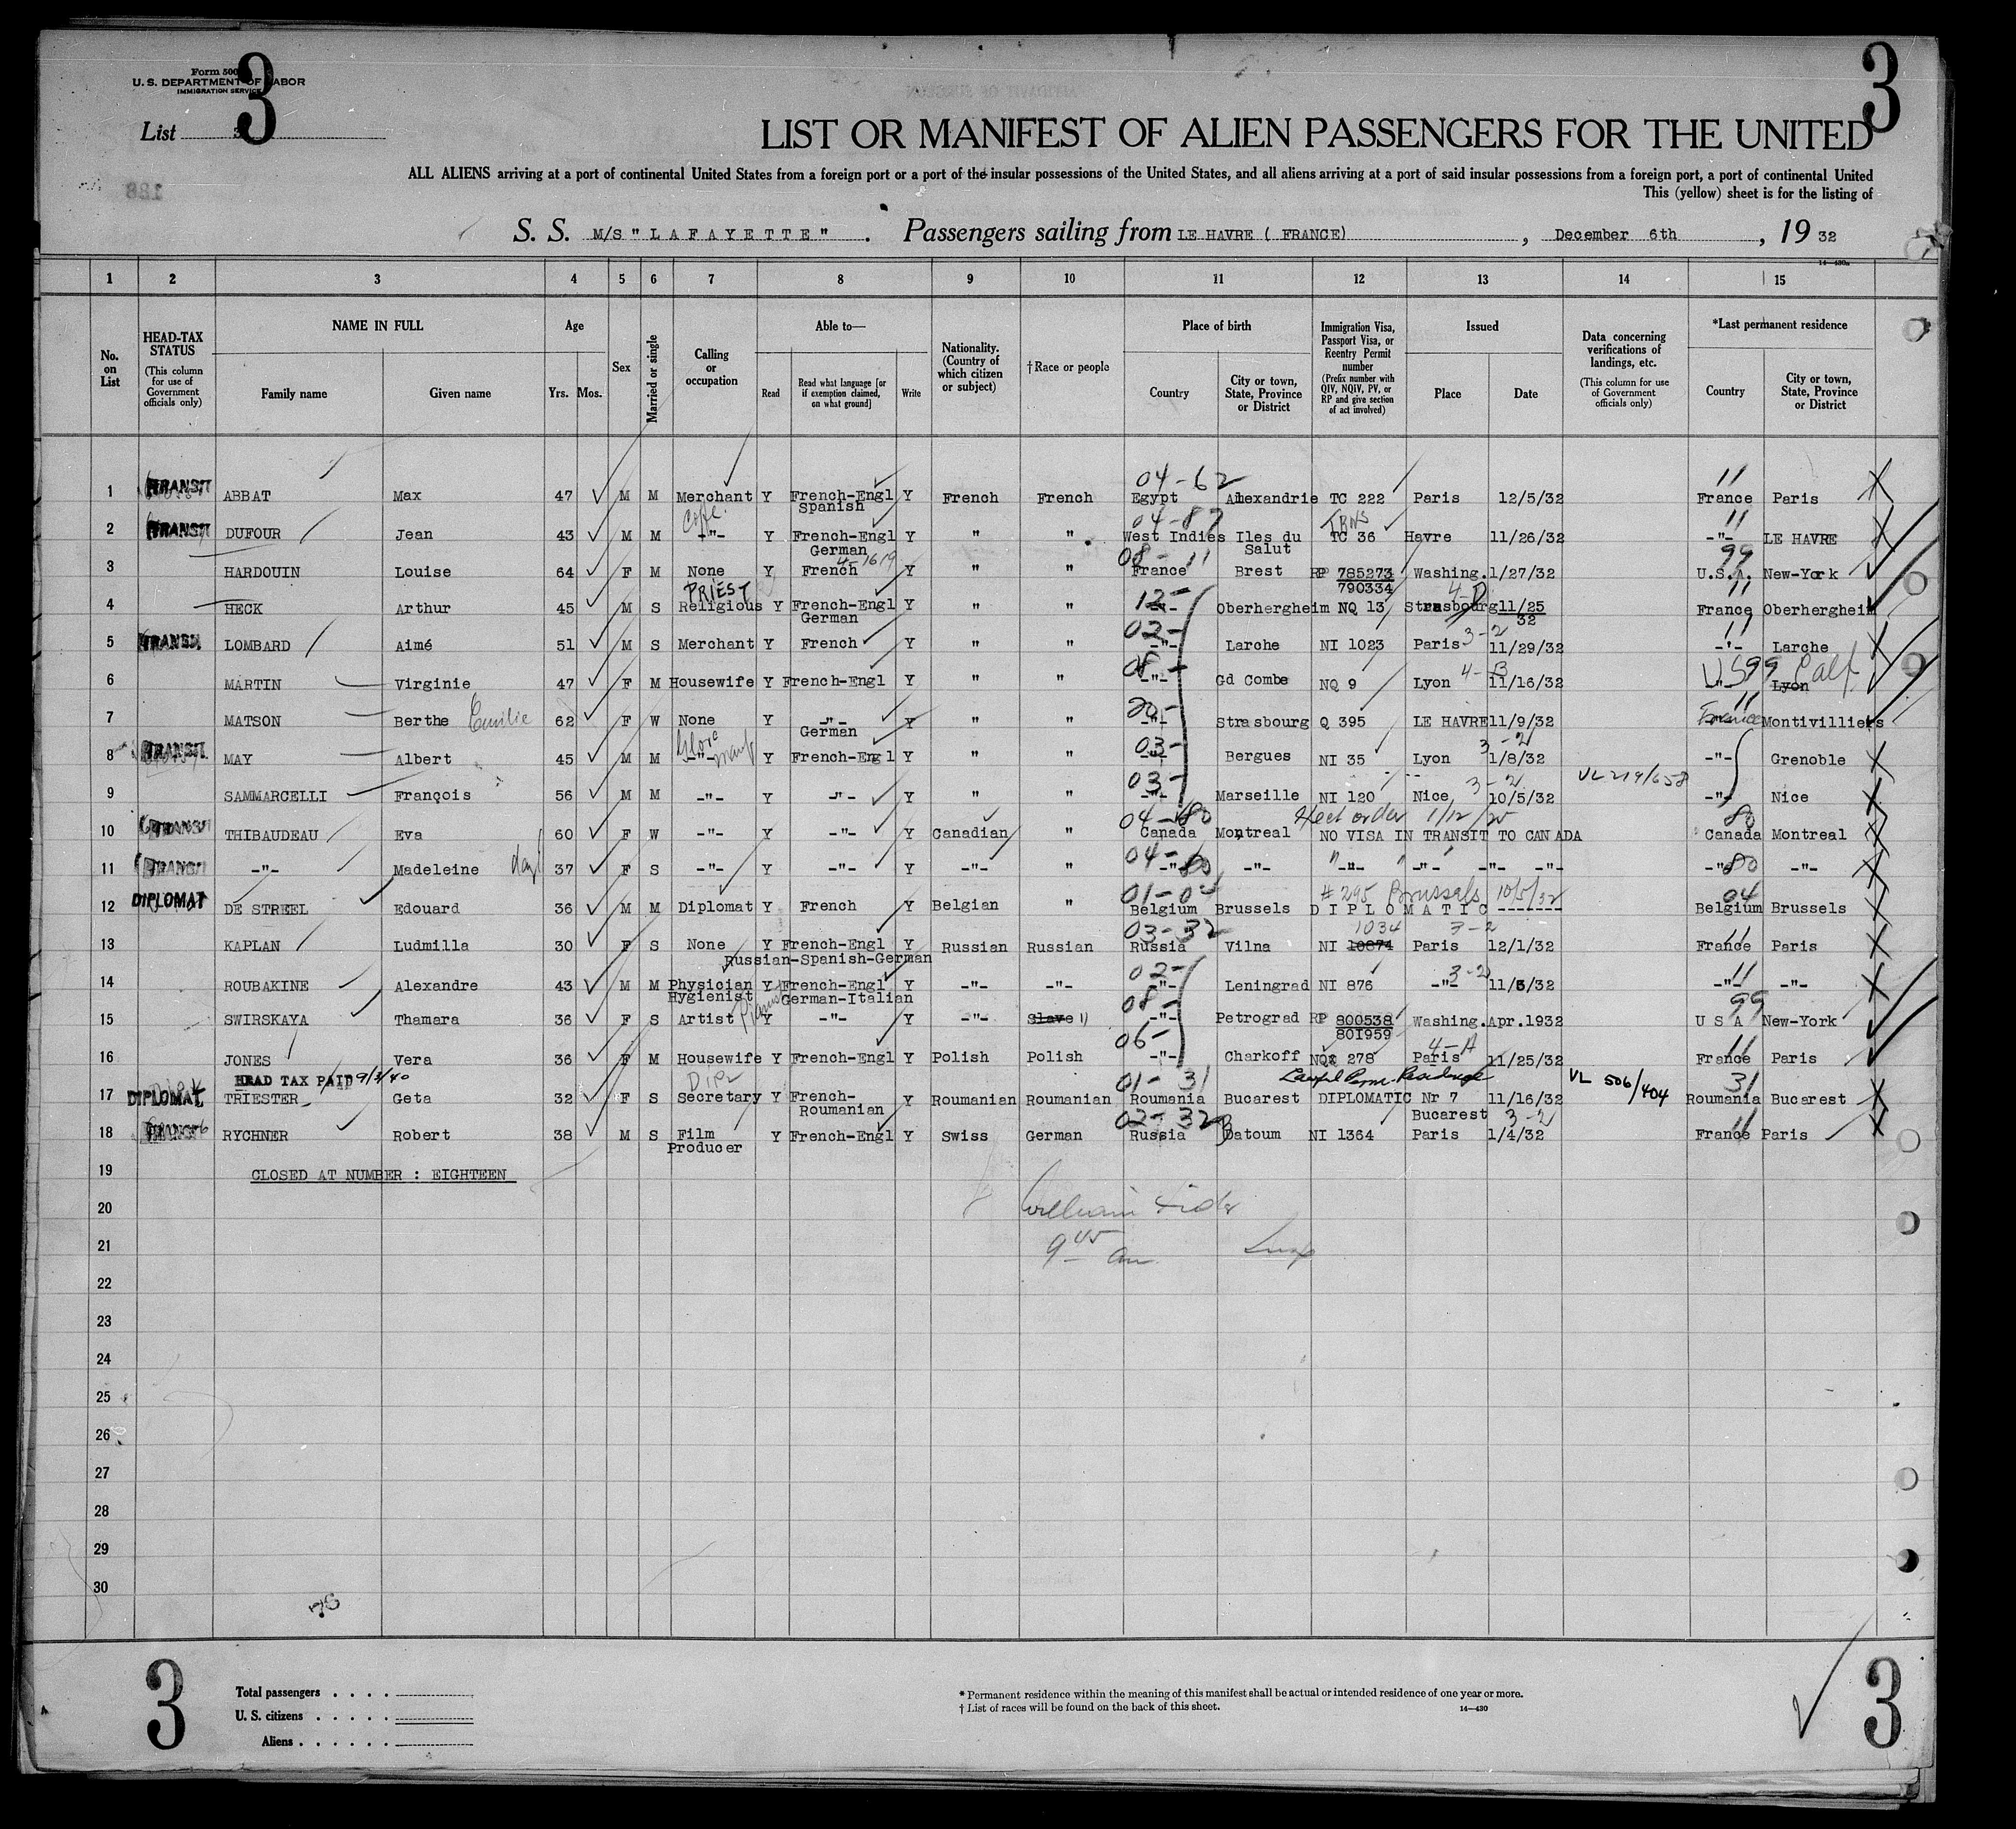 3
3
Form 500
U. S. DEPARTMENT OF LABOR
IMMIGRATION SERVICE
List 3
LIST OR MANIFEST OF ALIEN PASSENGERS FOR THE UNITED
ALL ALIENS arriving at a port of continental United States from a foreign port or a port of the insular possessions of the United States, and all aliens arriving at a port of said insular possessions from a foreign port, a port of continental United
This (yellow) sheet is for the listing of
S. S. M/S " L A F A Y E T T E " . Passengers sailing from LE HAVRE ( FRANCE) , December 6th , 19 32
14—430a
1 2 3 4 5 6 7 8 9 10 11 12 13 14 15
No. on List
HEAD-TAX STATUS (This column for use of Government officials only)
NAME IN FULL
Family name Given name
Age
Yrs. Mos.
Sex
Married or single
Calling or occupation
Able to—
Read Read what language [or if exemption claimed, on what ground] Write
Nationality. (Country of which citizen or subject)
†Race or people
Place of birth
Country City or town, State, Province or District
Immigration Visa, Passport Visa, or Reentry Permit number (Prefix number with QIV, NQIV, PV, or RP and give section of act involved)
Issued
Place Date
Data concerning verifications of landings, etc. (This column for use of Government officials only)
*Last permanent residence
Country City or town, State, Province or District
04-62 11
1 TRANSIT ABBAT Max 47 M M Merchant Y French-Engl Y French French Egypt Alexandrie TC 222 Paris 12/5/32 France Paris
Spanish
04-87 TRNS 11
2 TRANSIT DUFOUR Jean 43 M M -"- Y French-Engl Y " " West Indies Iles du TC 36 Havre 11/26/32 -"- LE HAVRE
German Salut
08- 11 99
3 HARDOUIN Louise 64 F M None Y French Y " " France Brest RP 785273 Washing. 1/27/32 U.S.A. New-York
790334
PRIEST 12- 4-D 11
4 HECK Arthur 45 M S Religious Y French-Engl Y " " -"- Oberhergheim NQ 13 Strasbourg 11/25 France Oberhergheim
German 32
02- 3-2 11
5 TRANSIT LOMBARD Aimé 51 M S Merchant Y French Y " " -"- Larche NI 1023 Paris 11/29/32 -"- Larche
08- 4-B US 99 Calf
6 MARTIN Virginie 47 F M Housewife Y French-Engl Y " " -"- Gd Combe NQ 9 Lyon 11/16/32 -"- Lyon
20- 11
7 MATSON Berthe Emilie 62 F W None Y -"- Y " " -"- Strasbourg Q 395 LE HAVRE 11/9/32 France Montivilliers
German
Glove manf 03- 3-2
8 TRANSIT MAY Albert 45 M M -"- Y French-Engl Y " " -"- Bergues NI 35 Lyon 1/8/32 -"- Grenoble
03- 3-2 VL 219/658
9 SAMMARCELLI François 56 M M -"- Y -"- Y " " -"- Marseille NI 120 Nice 10/5/32 -"- Nice
04-80 1/12/25 80
10 TRANSIT THIBAUDEAU Eva 60 F W -"- Y -"- Y Canadian " Canada Montreal NO VISA IN TRANSIT TO CANADA Canada Montreal
04-80 80
11 TRANSIT -"- Madeleine 37 F S -"- Y -"- Y -"- " -"- -"- -"- -"- -"- -"- -"- -"-
01-04 #295 Brussels 10/5/32 04
12 DIPLOMAT DE STREEL Edouard 36 M M Diplomat Y French Y Belgian " Belgium Brussels D I P L O M A T I C ------- Belgium Brussels
03-32 1034 3-2 11
13 KAPLAN Ludmilla 30 F S None Y French-Engl Y Russian Russian Russia Vilna NI 10874 Paris 12/1/32 France Paris
Russian-Spanish-German
02- 3-2 11
14 ROUBAKINE Alexandre 43 M M Physician Y French-Engl Y -"- -"- -"- Leningrad NI 876 -"- 11/5/32 -"- -"-
Hygienist German-Italian
08- 99
15 SWIRSKAYA Thamara 36 F S Artist Pianist Y -"- Y -"- Slave -"- Petrograd RP 800538 Washing. Apr.1932 U S A New-York
801959
06- 4-A 11
16 JONES Vera 36 F M Housewife Y French-Engl Y Polish Polish -"- Charkoff NQ 278 Paris 11/25/32 France Paris
HEAD TAX PAID 9/3/40 DIPL 01-31 Lawful Perm. Residence VL 506/404 31
17 DIPLOMAT TRIESTER Geta 32 F S Secretary Y French- Y Roumanian Roumanian Roumania Bucarest DIPLOMATIC Nr 7 11/16/32 Roumania Bucarest
Roumanian Bucarest
02-32 3-2 11
18 TRANSIT RYCHNER Robert 38 M S Film Y French-Engl Y Swiss German Russia Batoum NI 1364 Paris 1/4/32 France Paris
Producer
19 CLOSED AT NUMBER : EIGHTEEN
20 William
21 9 45 am
22
23
24
25
26
27
28
29
30
3
Total passengers . . . .
U. S. citizens . . . . .
Aliens . . . . . .
* Permanent residence within the meaning of this manifest shall be actual or intended residence of one year or more.
† List of races will be found on the back of this sheet.
14—430
3